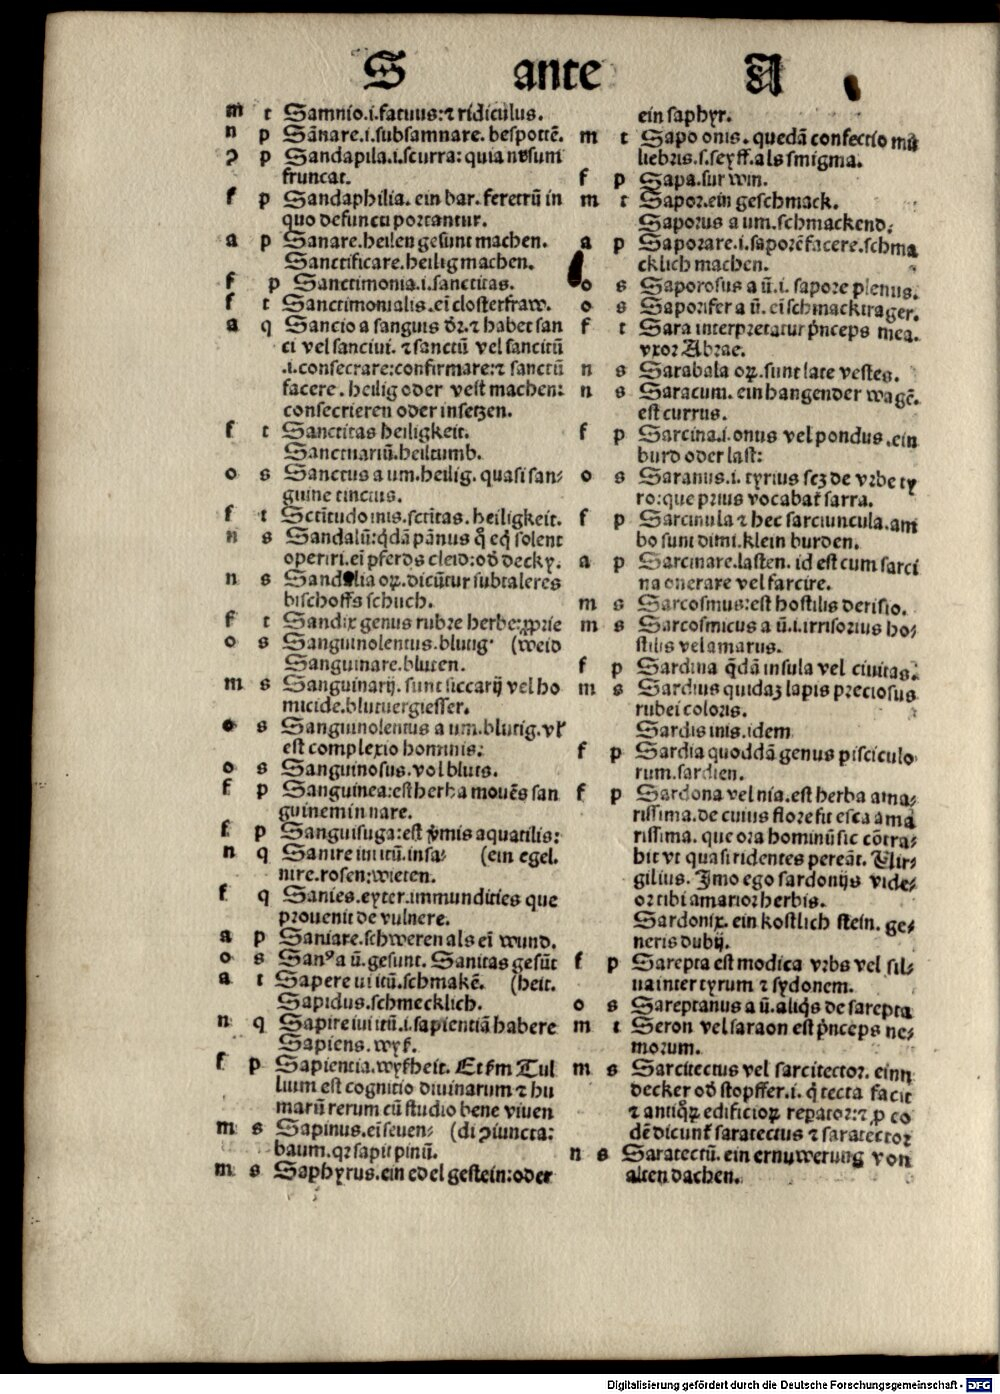 S ante A
m t Samnio.i.fatuus:⁊ ridiculus.
n p Sānare.i.subsannare. bespottē.
ꝯ p Sandapila.i.scurra: quia nusum
fruncat.
f p Sandaphilia. ein bar. feretrū in
quo defuncti portantur.
a p Sanare.heilen gesunt machen.
Sanctificare.heilig machen.
f p Sanctimonia.i.sanctitas.
f t Sanctimonialis.eī closterfraw.
a q Sancio a sanguis dr̄.⁊ habet san
ci vel sanciui. ⁊ sanctū vel sancitū
.i.consecrare:confirmare:⁊ sanctū
facere. heilig oder vest machen:
consecrieren oder insetzen.
f t Sanctitas heiligkeit.
Sanctuariū.heiltumb.
o s Sanctus a um.heilig. quasi san⸗
guine tinctus.
f t Sctītudo inis.sctītas. heiligkeit.
n s Sandalū:qdā pānus q̄ eq̄ solent
operiri.eī pferds cleid:od̄ decky.
n s Sandalia oꝝ.dicūtur subtalares
bischoffs schuch.
f t Sandix genus rubre herbe:ꝓprie
o s Sanguinolentus.blutig (weid
Sanguinare.bluten.
m s Sanguinarij. sunt siccarij vel ho
micide.blutuergiesser.
o s Sanguinolentus a um.blutig.vł
est complexio hominis:
o s Sanguinosus.vol bluts.
f p Sanguinea:est herba mouēs san
guinem in nare.
f p Sanguisuga:est v̓mis aquatilis:
n q Sanire iui itū.insa⸗ (ein egel.
nire.rosen:wieten.
f q Sanies.eyter.immundities que
prouenit de vulnere.
a p Saniare.schweren als eī wund.
o s Sanꝰ a ū.gesunt. Sanitas gesūt
a t Sapere ui itū.schmakē. (heit.
Sapidus.schmecklich.
n q Sapire iui itū.i.sapientiā habere
Sapiens.wyß.
f p Sapientia.wyßheit. Et fm Tul
lium est cognitio diuinarum ⁊ hu
marū rerum cū studio bene viuen
m s Sapinus.eī seuen⸗ (di ꝯiuncta:
baum.qꝛ sapit pinū.
m s Saphyrus.ein edel gestein:oder
ein saphyr.
m t Sapo onis. quedā confectio mu
liebris.s.seyff.als smigma.
f p Sapa.sur win.
m t Sapor.ein geschmack.
Saporus a um.schmackend.
a p Saporare.i.saporē facere.schma
cklich machen.
o s Saporosus a ū.i. sapore plenus.
o s Saporifer a ū. eī schmacktrager.
f t Sara interpretatur p̄nceps mea.
vxor Abrae.
n s Sarabala oꝝ.sunt late vestes.
n s Saracum. ein hangender wagē.
est currus.
f p Sarcina.i.onus vel pondus.ein
burd oder last:
o s Saranus.i. tyrius scꝫ de vrbe ty
ro:que prius vocabat̄ sarra.
f p Sarcinula ⁊ hec sarciuncula.am
bo sunt dimi.klein burden.
a p Sarcinare.lasten. id est cum sarci
na onerare vel farcire.
m s Sarcosmus:est hostilis derisio.
m s Sarcosmicus a ū.i.irrisorius ho⸗
stilis vel amarus.
f p Sardina q̄dā insula vel ciuitas.
m s Sardius quidaꝫ lapis preciosus
rubei coloris.
Sardis inis.idem
f p Sardia quoddā genus pisciculo
rum.sardien.
f p Sardona vel nia.est herba ama⸗
rissima.de cuius flore fit esca ama
rissima. que ora hominū sic cōtra⸗
hit vt quasi ridentes pereāt. Vir⸗
gilius. Imo ego sardonijs vide⸗
or tibi amarior herbis.
Sardonix. ein kostlich stein. ge⸗
neris dubij.
f p Sarepta est modica vrbs vel sil⸗
ua inter tyrum ⁊ sydonem.
o s Sareptanus a ū.aliq̄s de sarepta
m t Seron vel saraon est p̄nceps ne⸗
morum.
m s Sarcitectus vel sarcitector. einn
decker od̄ stopffer.i. q̄ tecta facit
⁊ antiqoꝝ edificioꝝ reparator:⁊ ꝓ eo
dē dicunt̄ saratectus ⁊ saratector
n s Saratectū. ein ernuwerung von
alten dachen.
Digitalisierung gefördert durch die Deutsche Forschungsgemeinschaft - DFG